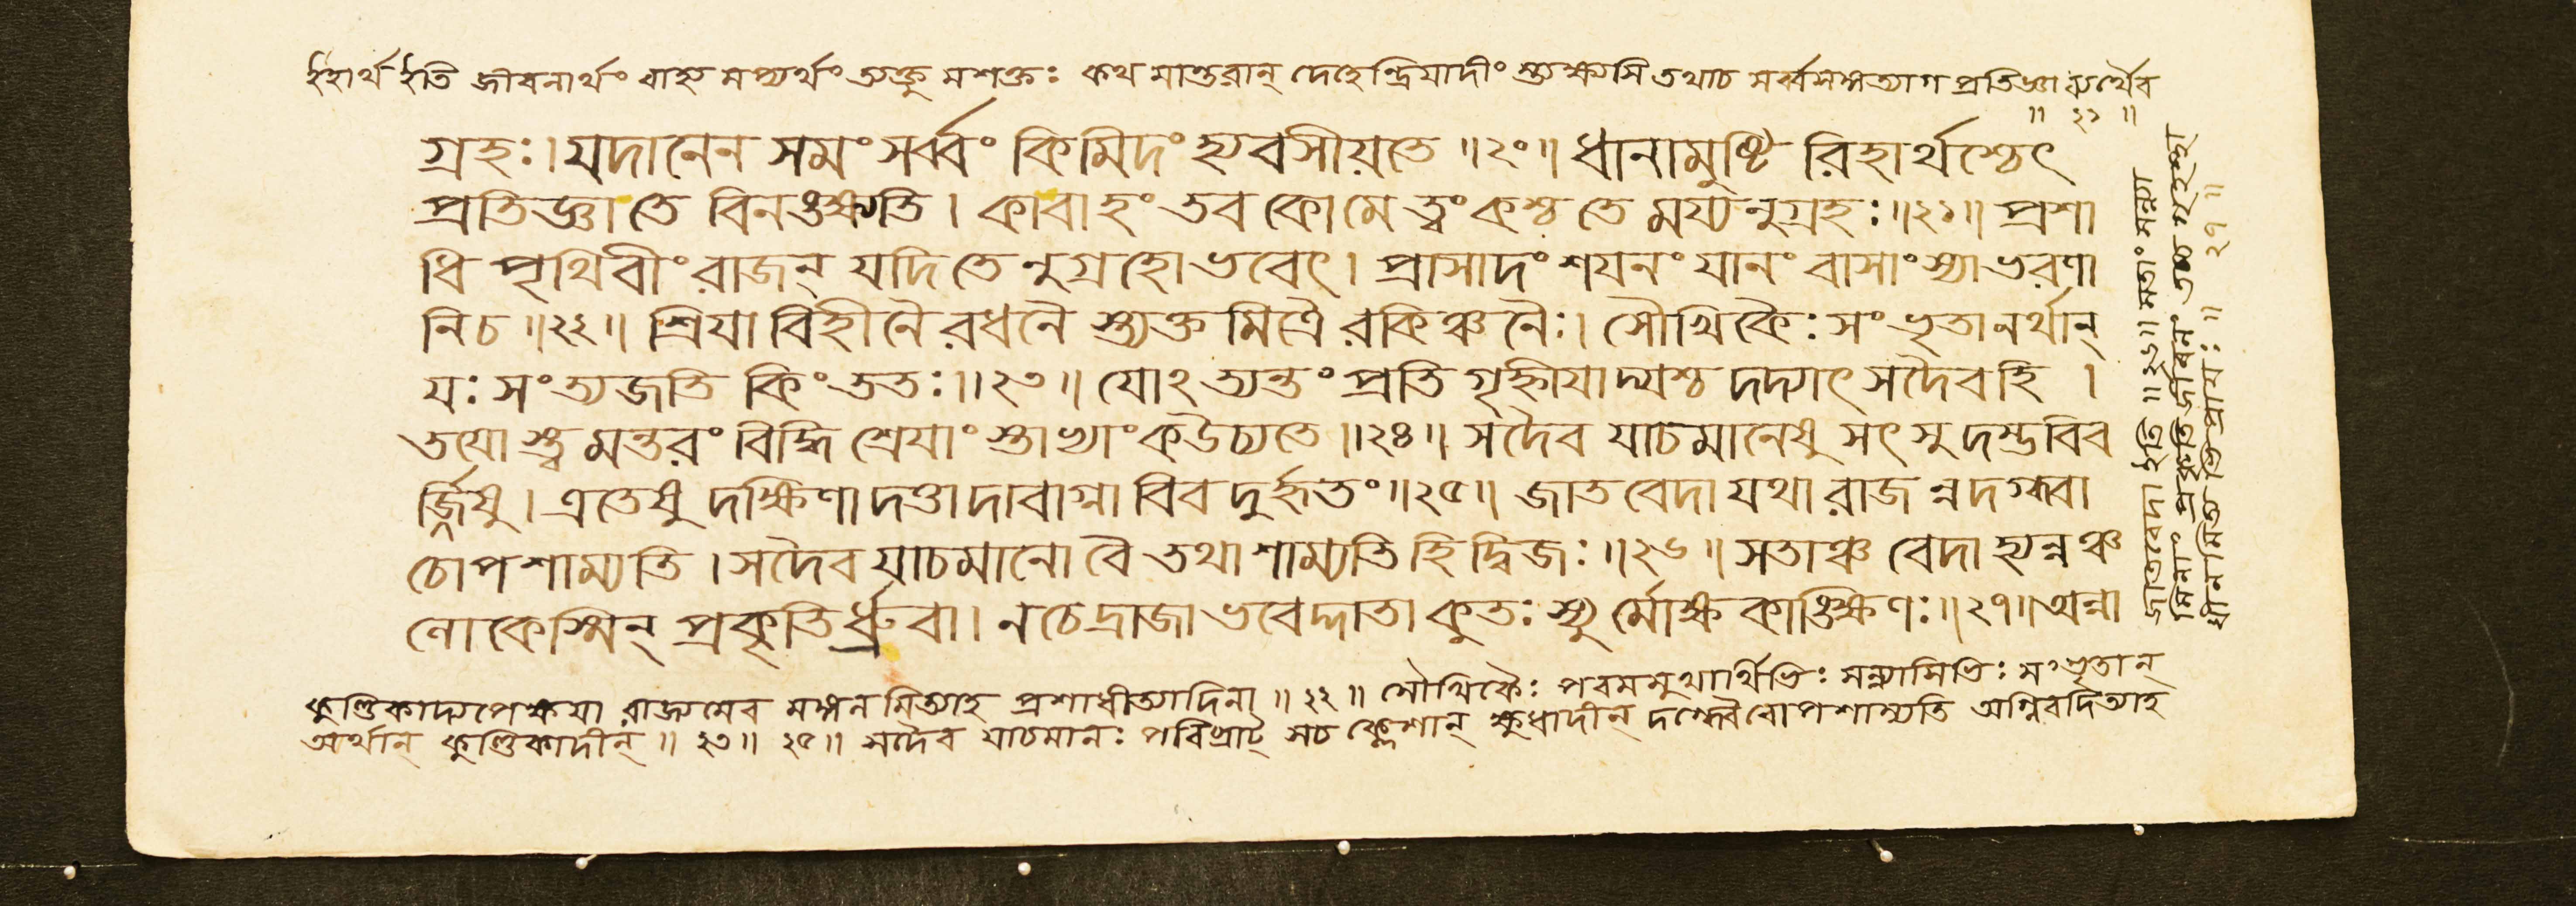 ইহার্থ ইতি জীবনার্থং বাহ্য মপ্যর্থং ত্যক্তু মশক্তঃ কথ মান্তরান্ দেহেন্দ্রিযাদীং স্ত্যক্ষ্যসি তথাচ সর্ব্বসঙ্গত্যাগ প্রতিজ্ঞা
॥ ২১ ॥
গ্রহঃ। যদানেন সমং সর্ব্বং কিমিদং হ্যবসীয়তে ॥২০॥ ধানামুষ্টি রিহার্থশ্চেৎ
প্রতিজ্ঞা তে বিনঙ্ক্ষ্যতি। কাবাহং তব কোমে ত্বং কশ্চ তে ময্যনুগ্রহঃ॥২১॥ প্রশা
ধি পৃথিবীং রাজন্ যদি তে নুগ্রহো ভবেৎ। প্রাসাদং শযনং যানং বাসাংস্যাভরণা
নিচ ॥২২॥ শ্রিযা বিহীনৈ রধনৈ স্ত্যক্ত মিত্রৈ রকিঞ্চনৈঃ। সৌখিকৈঃ সংভৃতানর্থান্
যঃ সংত্যজতি কিং ততঃ॥২৩॥ যোঽত্যন্তং প্রতি গৃহ্নীযাদ্যশ্চ দদ্যাৎ সদৈব হি ।
তযো স্ত্ব মন্তরং বিদ্ধি শ্রেযাংস্তাভ্যাং কউচ্যতে॥২৪॥ সদৈব যাচমানেষু সৎসু দম্ভবিব
র্জ্জিষু। এতেষু দক্ষিণা দত্তা দাবাগ্না বিব দুর্হুতং॥২৫॥ জাতবেদা যথা রাজ ন্নদগ্ধ্বা
চোপশাম্যতি। সদৈব যাচমানো বৈ তথা শাম্যতি হি দ্বিজঃ॥২৬॥ সতাঞ্চ বেদা হ্যন্নঞ্চ
লোকেস্মিন্ প্রকৃতির্ধ্রুবা। নচেদ্রাজা ভবেদ্দাতা কুতঃ স্যু র্মোক্ষ কাঙ্ক্ষিণঃ॥২৭॥ অন্না
কুণ্ডিকাদ্যপেক্ষযা রাজ্যমেব মিত্যাহ প্রশাধীত্যাদিনা ॥ ২২ ॥ সৌখিকৈঃ পরমসুখার্থিভিঃ সন্ন্যাসিভিঃ সংভৃতান্
অর্থান্ কুণ্ডিকাদীন্ ॥ ২৩॥ ২৫॥ সদৈব যাচমানঃ পরিব্রাট্ সচ ক্লেশান্ ক্ষুধাদীন্ দগ্ধ্বৈবোপশাম্যতি অগ্নিবদিত্যাহ
জাতবেদা ইতি ॥২৬॥ সতাং
প্রকৃতি র্জীবনং
২৭॥